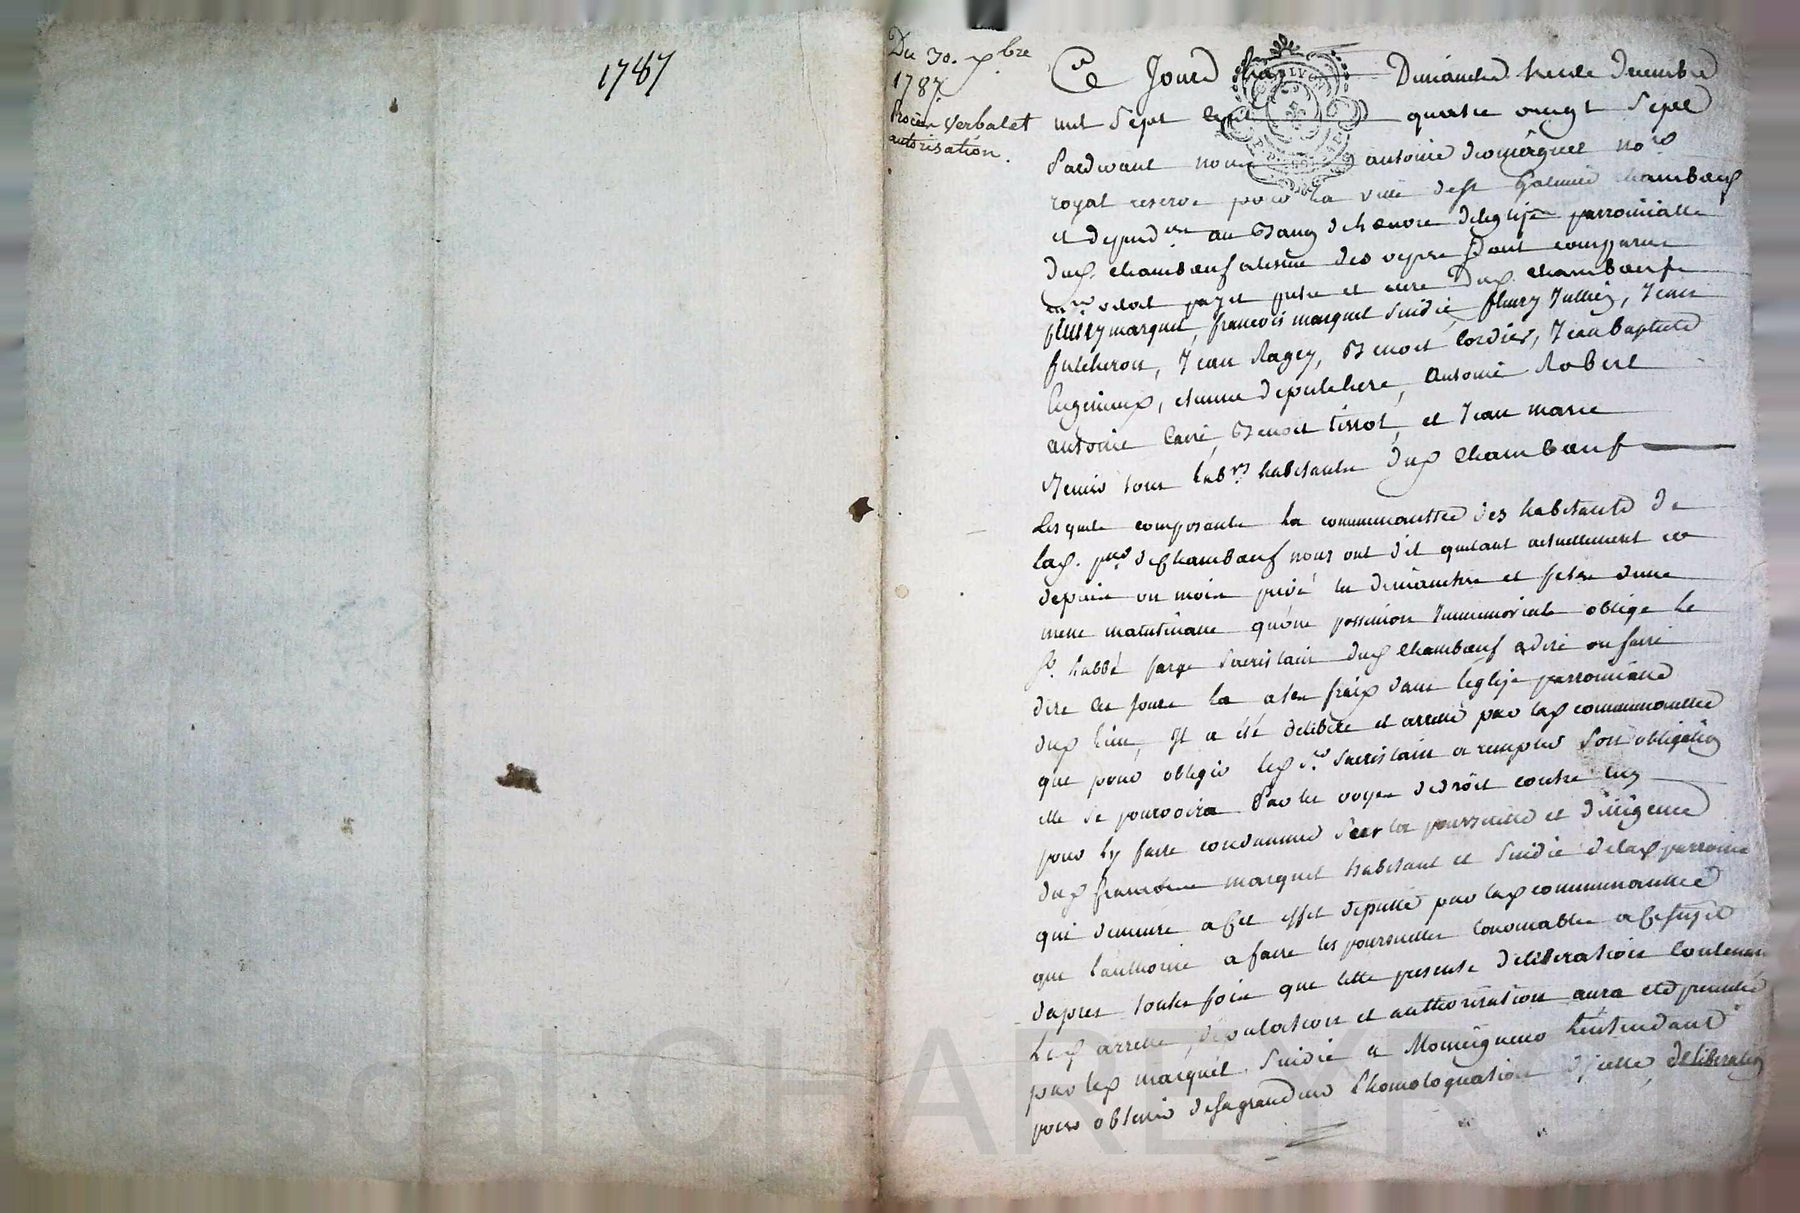 1787
Du 30. xbre
1787
Procès Verbal et
autorisation.
Ce Jourd'huy Dimanche trente Decembre
mil Sept Cent quatre vingt Sept
Pardevant nous antoine nore
royal reservé pour la ville de st Galmier chambœuf
et depend.ces au Banq de l'œuvre de leglise parroissialle
dud. chambœuf a lissue des vepres Sont comparus
payet pretre et curé Dud. chambœuf
fleury marquet, francois marquet Sindic, fleury Jullien, Jean
fulcheron, Jean Ragey, Benoit Cordier, Jean Baptiste
etienne depulchere, Antoine Robert
antoine Carré, Benoit tissot, et Jean marie
tous lab.rs habitants Dud Chambœuf
Lesquels composants la communautté des habitants De
lad. par. de Chambœuf nous ont dit quetant actuellement et
depuis un mois privé les dimanches et fetes dune
messe matutinalle qu'une possession Immemoriale oblige le
Sr. l'abbé farge Sacristain dud Chambœuf a dire ou faire
dire ces jours la a ses fraix dans l'eglise parroissialle
dud lieu, Il a été deliberé et arretté par lad communauttée
que pour obliger led Sr. Sacristain a remplir Son obligation
elle Se pourvoira Par les voyes de droit contre luy
pour ly faire condamner a la poursuitte et diligence
dud francois marquet habitant et Sindic de lad parroisse
qui demeure a cet effet deputté par lad communauttée
que l'authorise a faire les poursuittes convenables a ce sujet
dapres toutes fois que cette presente deliberation Contenant
Led arretté, deputation et authorisation aura eté presentée
par led marquet Sindic a Monseigneur L'intendant
pour obtenir de sa grandeur l'homologuation d'icelle deliberation
Pascal CHAREYRON